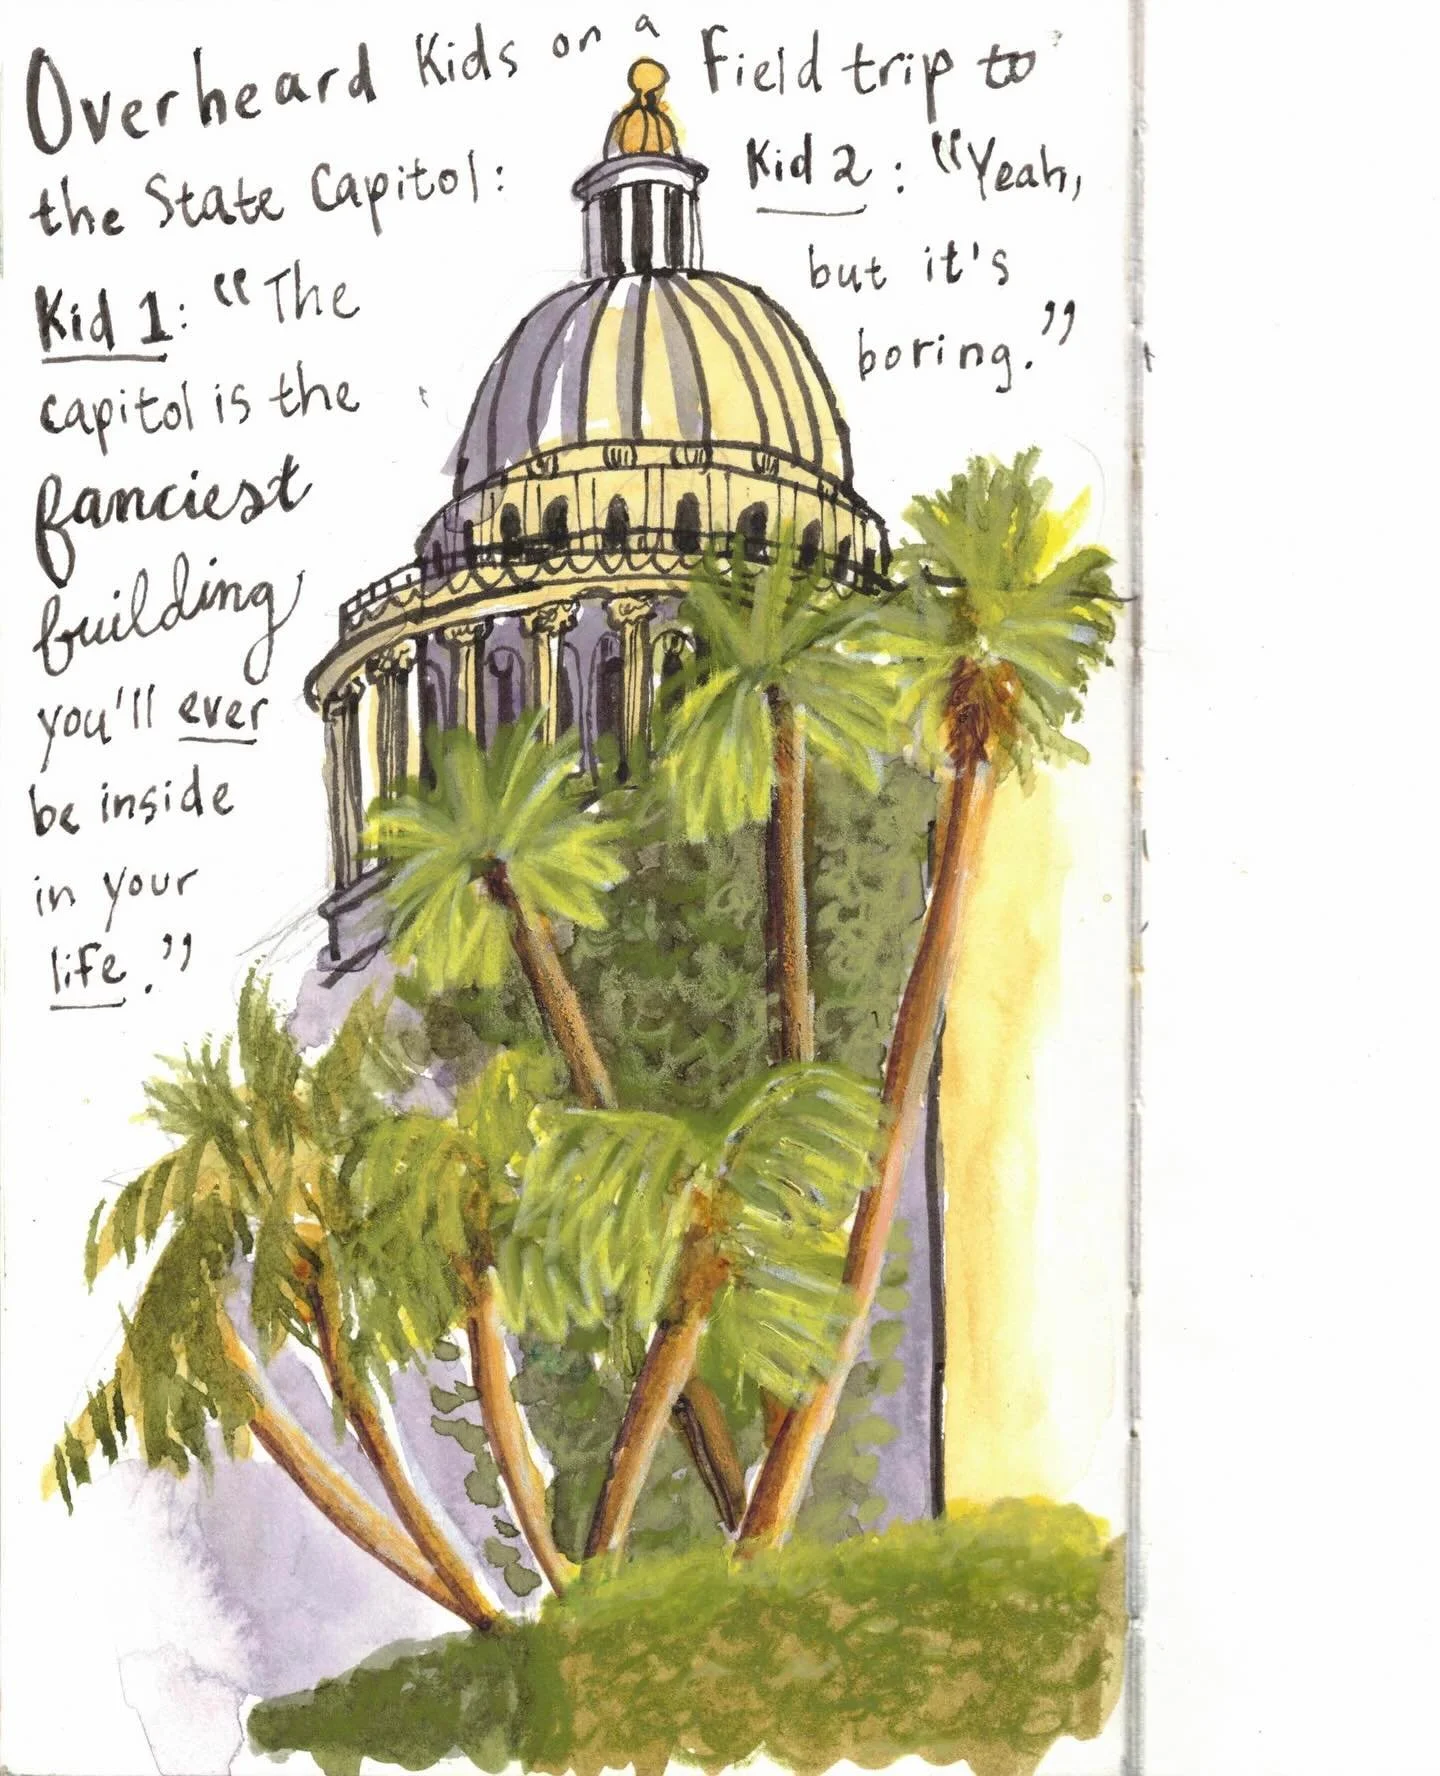 Overheard Kids on a Field trip to
the State Capitol:
Kid 1: "The
capitol is the
fanciest
building
you'll ever
be inside
in your
life."
Kid 2: "Yeah,
but it's
boring."